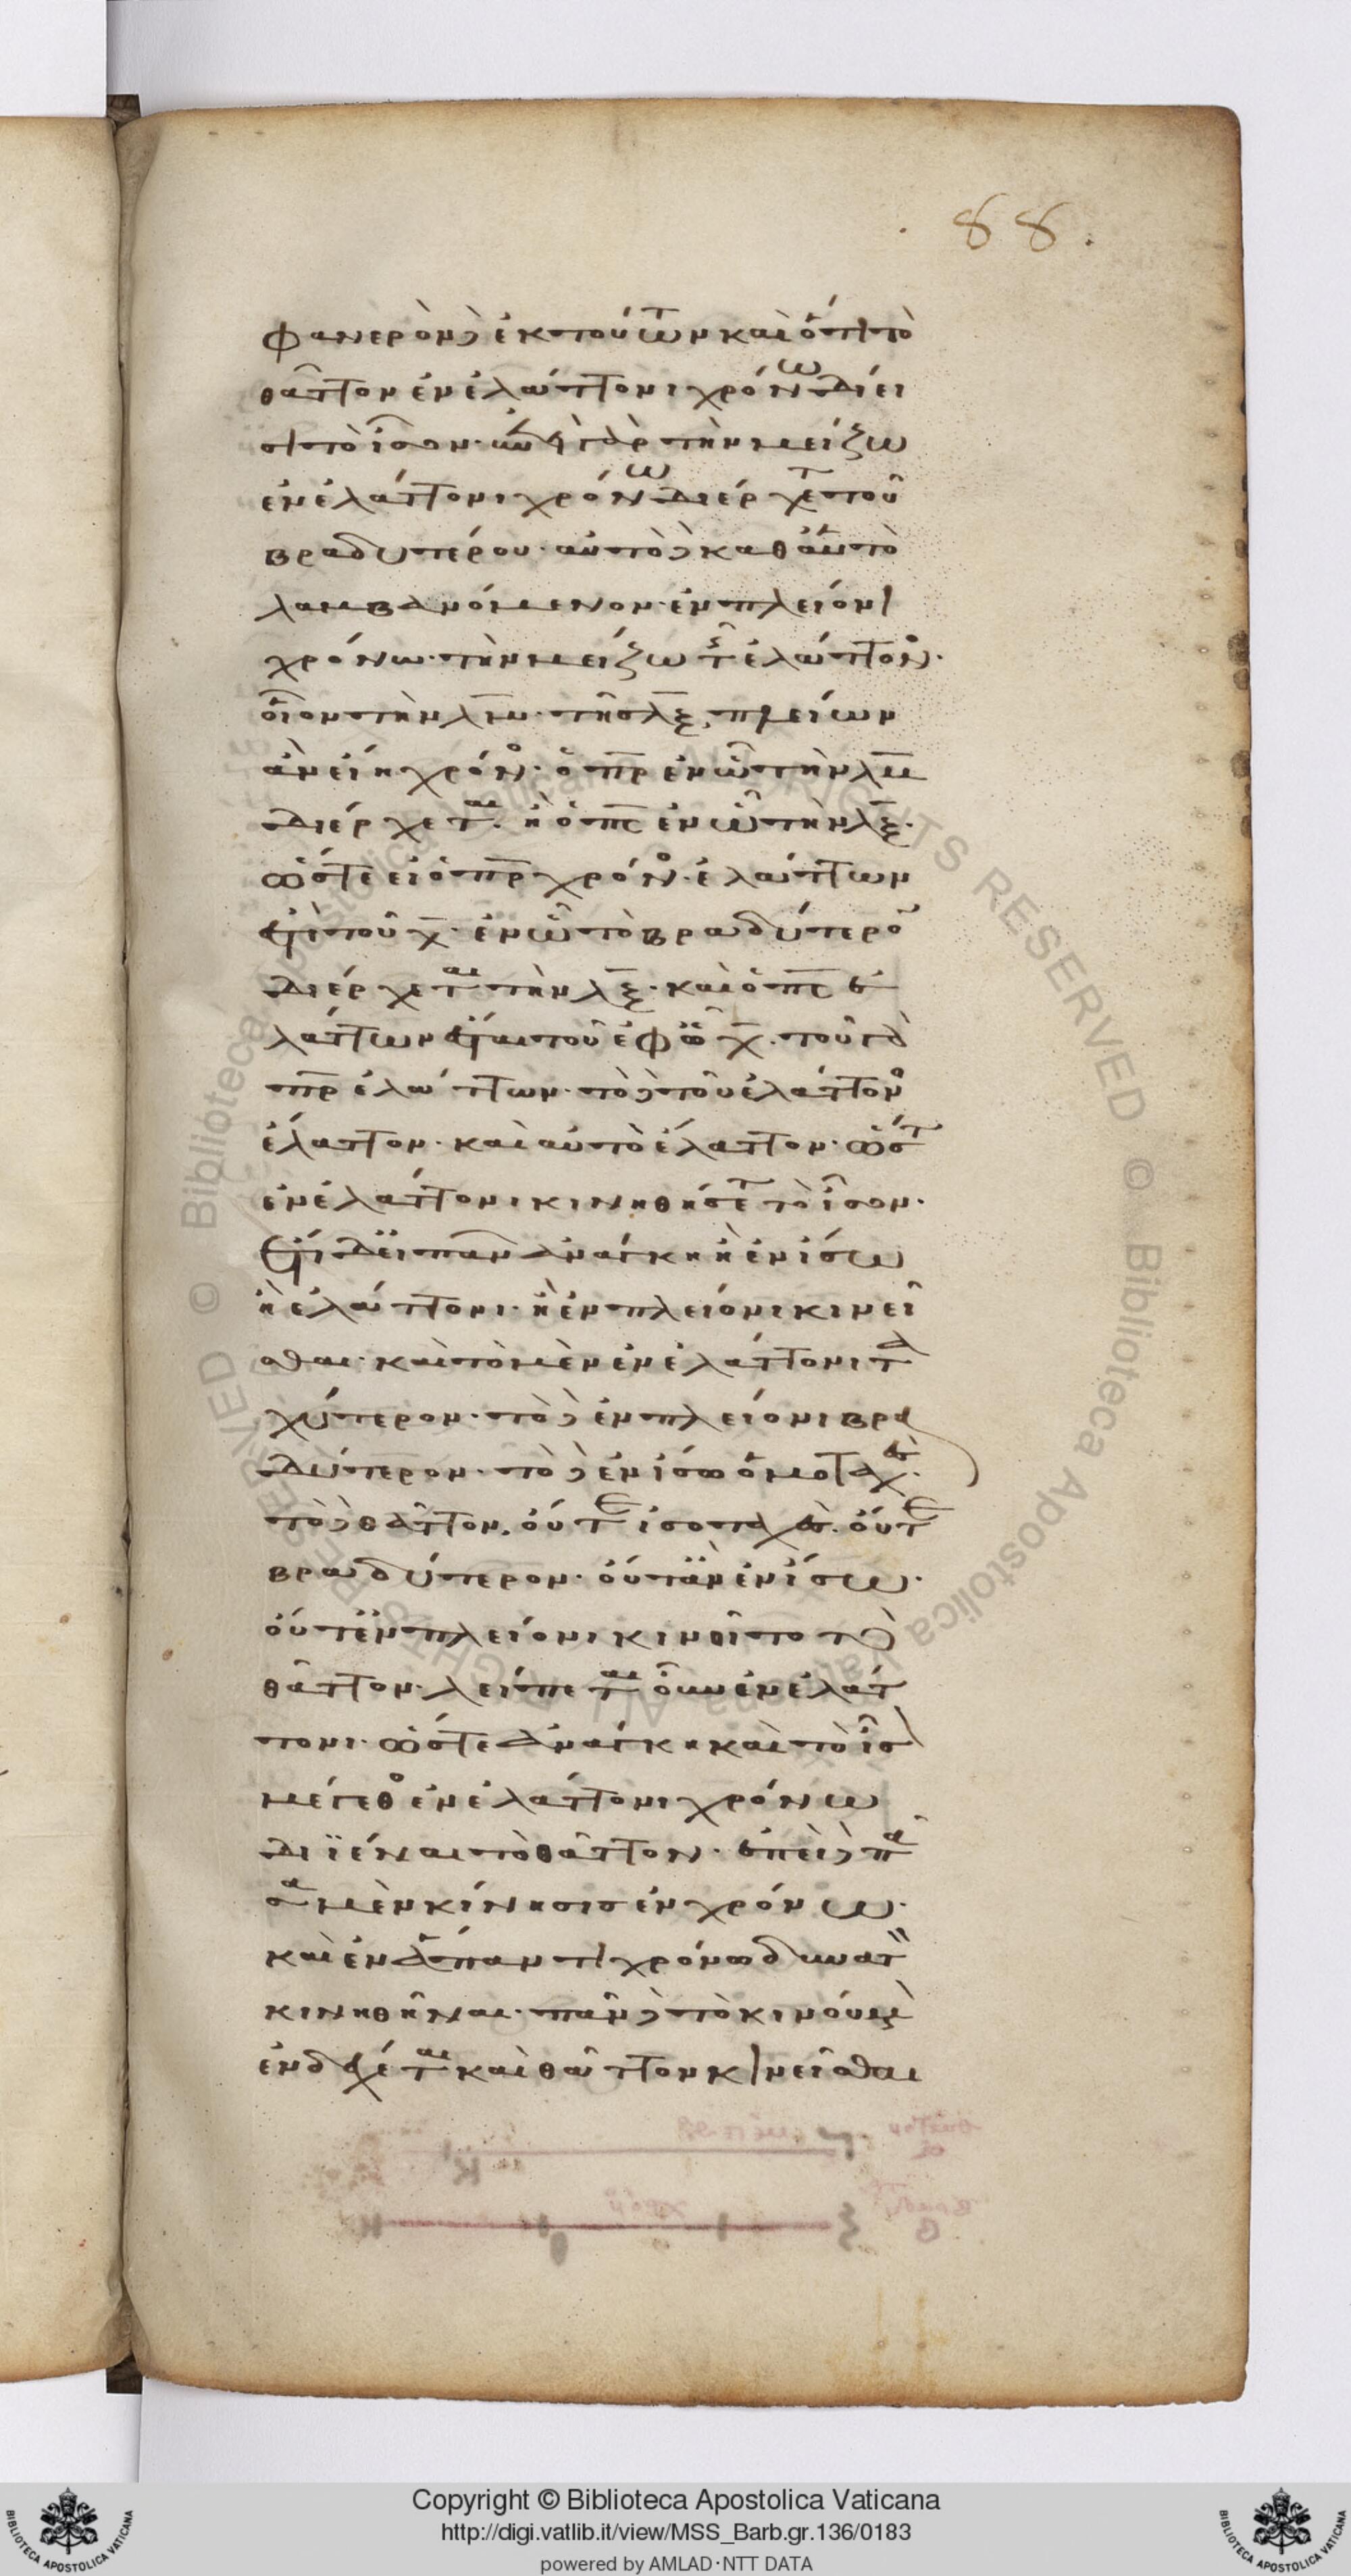 88.
φανερὸν δὲ ἐκ τούτων καὶ ὅτι τὸ
θᾶττον ἐν ἐλάττονι χρόνω δίει
σι τὸ ἴσον· ἐπεὶ γὰρ τὴν μείζω
ἐν ἐλάττονι χρόνω διέρχεται τοῦ
βραδυτέρου· αὐτὸ δὲ καθ αὑτὸ
λαμβανόμενον· ἐν πλείονι
χρόνω· τὴν μείζω τῆς ἐλάττονος·
οἷον τὴν λμ· τῆς λξ, πλείων
ἂν εἴη χρόνος· ὁ πρ ἐν ὧ τὴν λμ
διέρχεται· ἢ ὁ πς ἐν ὧ τὴν λξ·
ὥστε εἰ ὁ πρ χρόνος· ἐλάττων
ἐστὶ τοῦ χ· ἐν ὧ τὸ βραδύτερον
διέρχεται τὴν λξ· καὶ ὁ πς ἐ
λάττων ἔσται τοῦ ἐφ ὧ χ· τοῦ γὰρ
πρ ἐλάττων· τὸ δὲ τοῦ ἐλάττονος
ἔλαττον· καὶ αὐτὸ ἔλαττον· ὥστε
ἐν ἐλάττονι κινηθήσεται τὸ ἴσον·
ἔτι δ εἰ πᾶν ἀνάγκη ἢ ἐν ἴσω
ἢ ἐλάττονι· ἢ ἐν πλείονι κινεῖ
σθαι· καὶ τὸ μὲν ἐν ἐλάττονι τα
χύτερον· τὸ δὲ ἐν πλείονι βρα
δύτερον· τὸ δὲ ἐν ἴσω ὁμοταχές·
τὸ δὲ θᾶττον, οὔτε ἰσοταχὲς· οὔτε
βραδύτερον· οὔτ ἂν ἐν ἴσω·
οὔτ ἐν πλείονι κινοῖτο τὸ
θᾶττον· λείπεται οὖν ἐν ἐλάτ
τονι· ὥστε ἀνάγκη καὶ τὸ ἴσον
μέγεθος ἐν ἐλάττονι χρόνω
διϊέναι τὸ θᾶττον· ἐπεὶ δὲ πᾶ
σα μὲν κίνησις ἐν χρόνω·
καὶ ἐν ἅπαντι χρόνω δυνατὸν
κινηθῆναι· πᾶν δὲ τὸ κινούμενον
ἐνδέχεται καὶ θᾶττον κινεῖσθαι
Copyright © Biblioteca Apostolica Vaticana
http://digi.vatlib.it/view/MSS_Barb.gr.136/0183
powered by AMLAD·NTT DATA